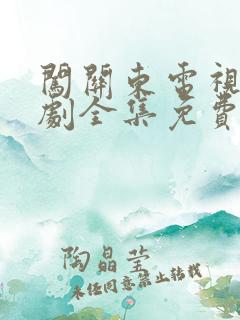 闖關東電視
劇全集免費
陶晶莹
未经同意禁止转载